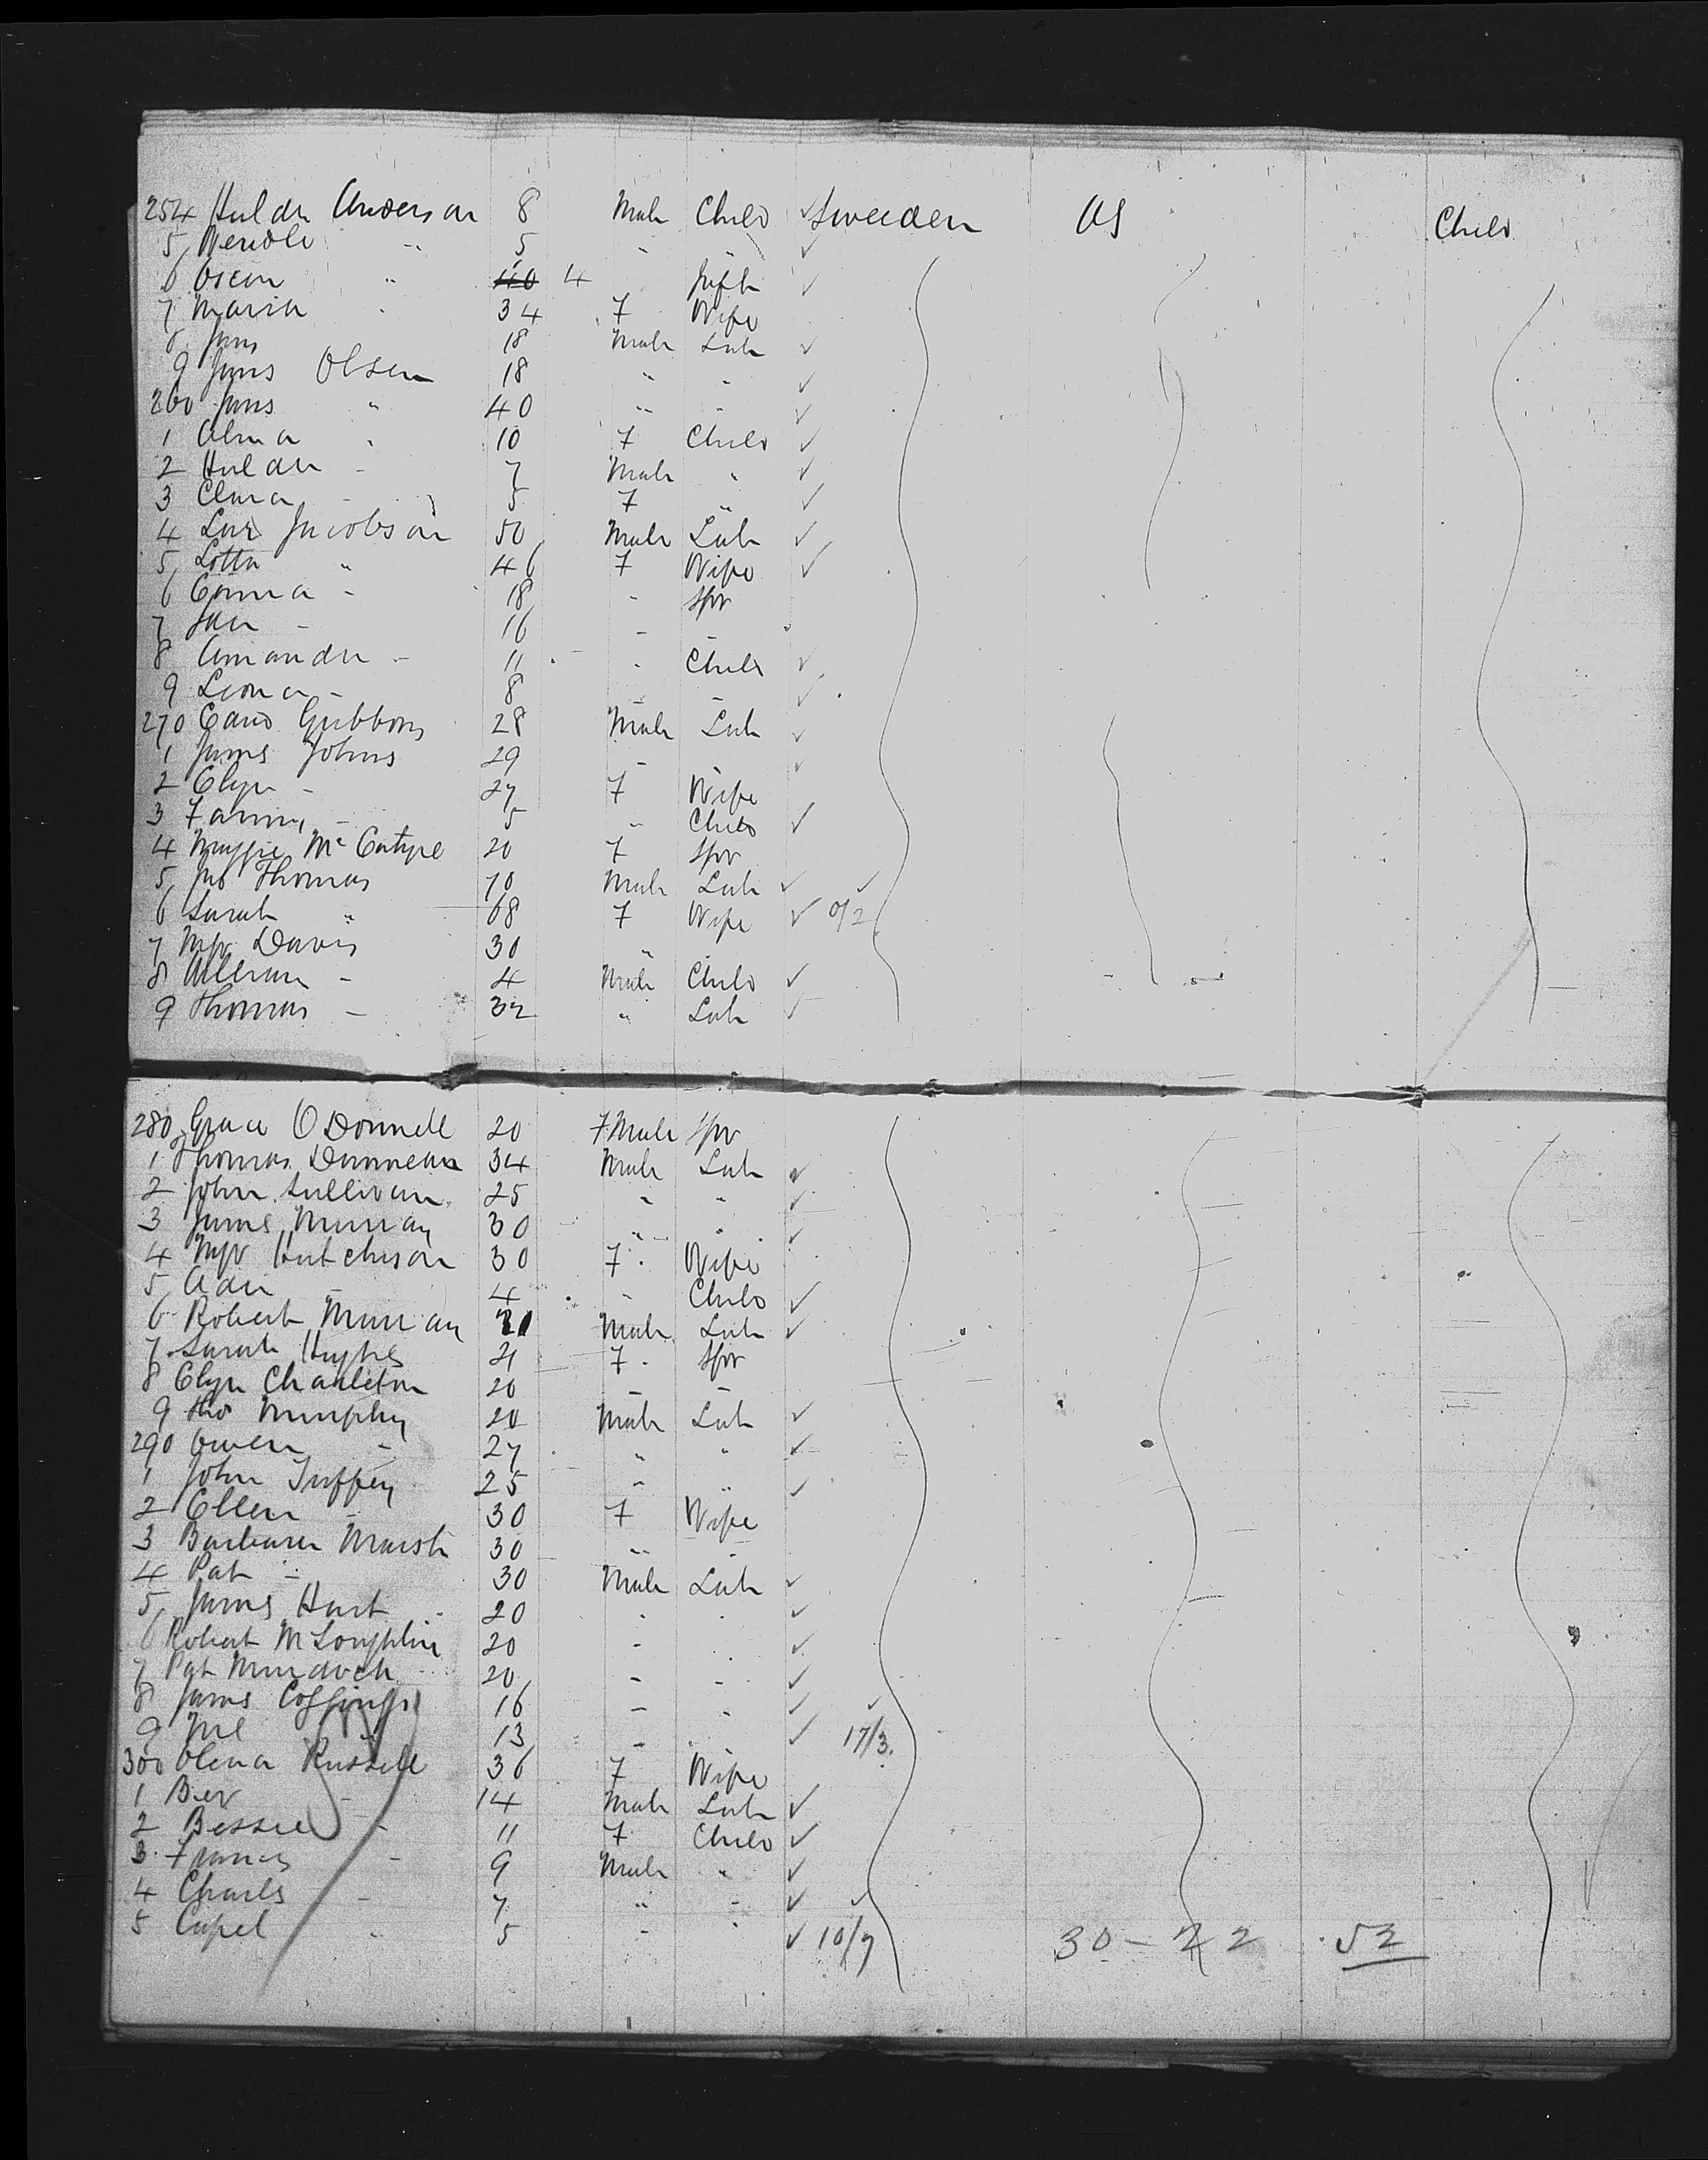 254 Huldu Anderson 8 Male Child ✓ Sweeden US Child
5 Wendle " 5 " " ✓
6 Oscar " 40 4 Infth ✓
7 Maria " 34 F Wife
8 Juns 18 Male Lab ✓
9 Juns Olsen 18 " " ✓
260 Juns " 40 " " ✓
1 Alma " 10 F Child ✓
2 Huldu - 7 Male " ✓
3 Clara - 5 F " ✓
4 Lars Jacobson 50 Male Lab ✓
5 Lotta " 46 F Wife ✓
6 Emma - 18 - Spr
7 - 16 - -
8 Amandu - 11 " Child ✓
9 Leona - 8 - - ✓
270 Edwd Gubbons 28 Male Lab ✓
1 James Johns 29 - - ✓
2 Elyn - 27 F Wife
3 Fanny - 5 " Child ✓
4 Maggie Mc Entyre 20 F Spr
5 Jno Thomas 70 Male Lab ✓ ✓
6 Sarah " 68 F Wife ✓ 0/2
7 Mrs Davis 30 " "
8 William - 4 Male Child ✓
9 Thomas - 32 " Lab ✓
280 Grace O Donnell 20 FMale Spr
1 Thomas Dunnean 34 Male Lab ✓
2 John Sullivan 25 " " ✓
3 James Murray 30 " " ✓
4 Mrs Hutchison 30 F Wife
5 Ada - 4 - Child ✓
6 Robert Murray Male Lab ✓
7 Sarah Hughes 21 F Spr
8 Elyn Charleton 20 - -
9 Tho Murphy 20 Male Lab ✓
290 Owen - 27 " " ✓
1 John Tuffey 25 - " ✓
2 Ellen - 30 F Wife
3 Barbara Marsh 30 " "
4 Pat - 30 Male Lab ✓
5 James Hart 20 " " ✓
6 Robert McLoughlin 20 - " ✓
7 Pat Murdoch 20 - - ✓
8 James 16 - " ✓ ✓
9 13 " " ✓ 17/3.
300 Olena Russell 36 F Wife
1 - 14 Male Lab ✓
2 Bessie - 11 F Child ✓
3 Francis - 9 Male " ✓
4 Charls - 7 " - ✓ ✓
5 Capel " 5 - " ✓ 10/7 30 - 22 52